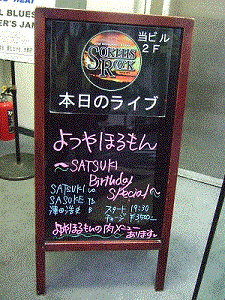 BLUES
ER'S JAM
当ビル
2F
SOKEHS
ROCK
本日のライブ
よつやほるもん
～SATSUKI
Birthday
Special～
SATSUKI
SASUKE
スタート 19:30
チャージ ¥3500-
よつやほるもんの肉メニュー
あります。